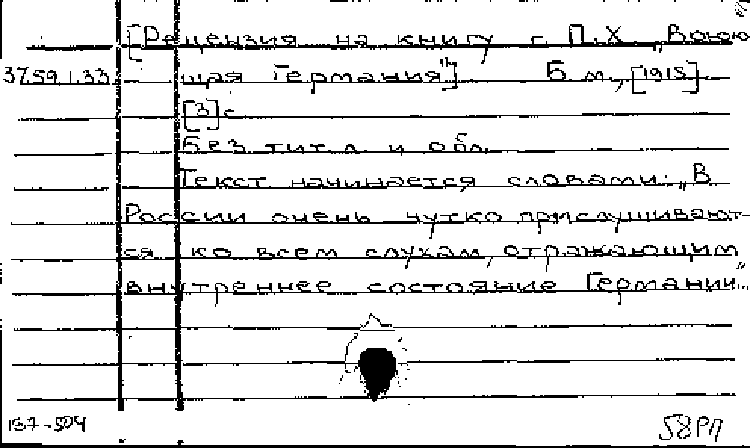 [Рецензия на книгу г. П.Х. „Воюю-
37.59.1.33. щая Германия"] Б.м., [1915].
[3] с
Без тит. л. и обл.
Текст начинается словами: „В
России очень чутко прислушивают-
ся ко всем слухам, отражающим
внутреннее состояние Германии..."
137-504 58РП